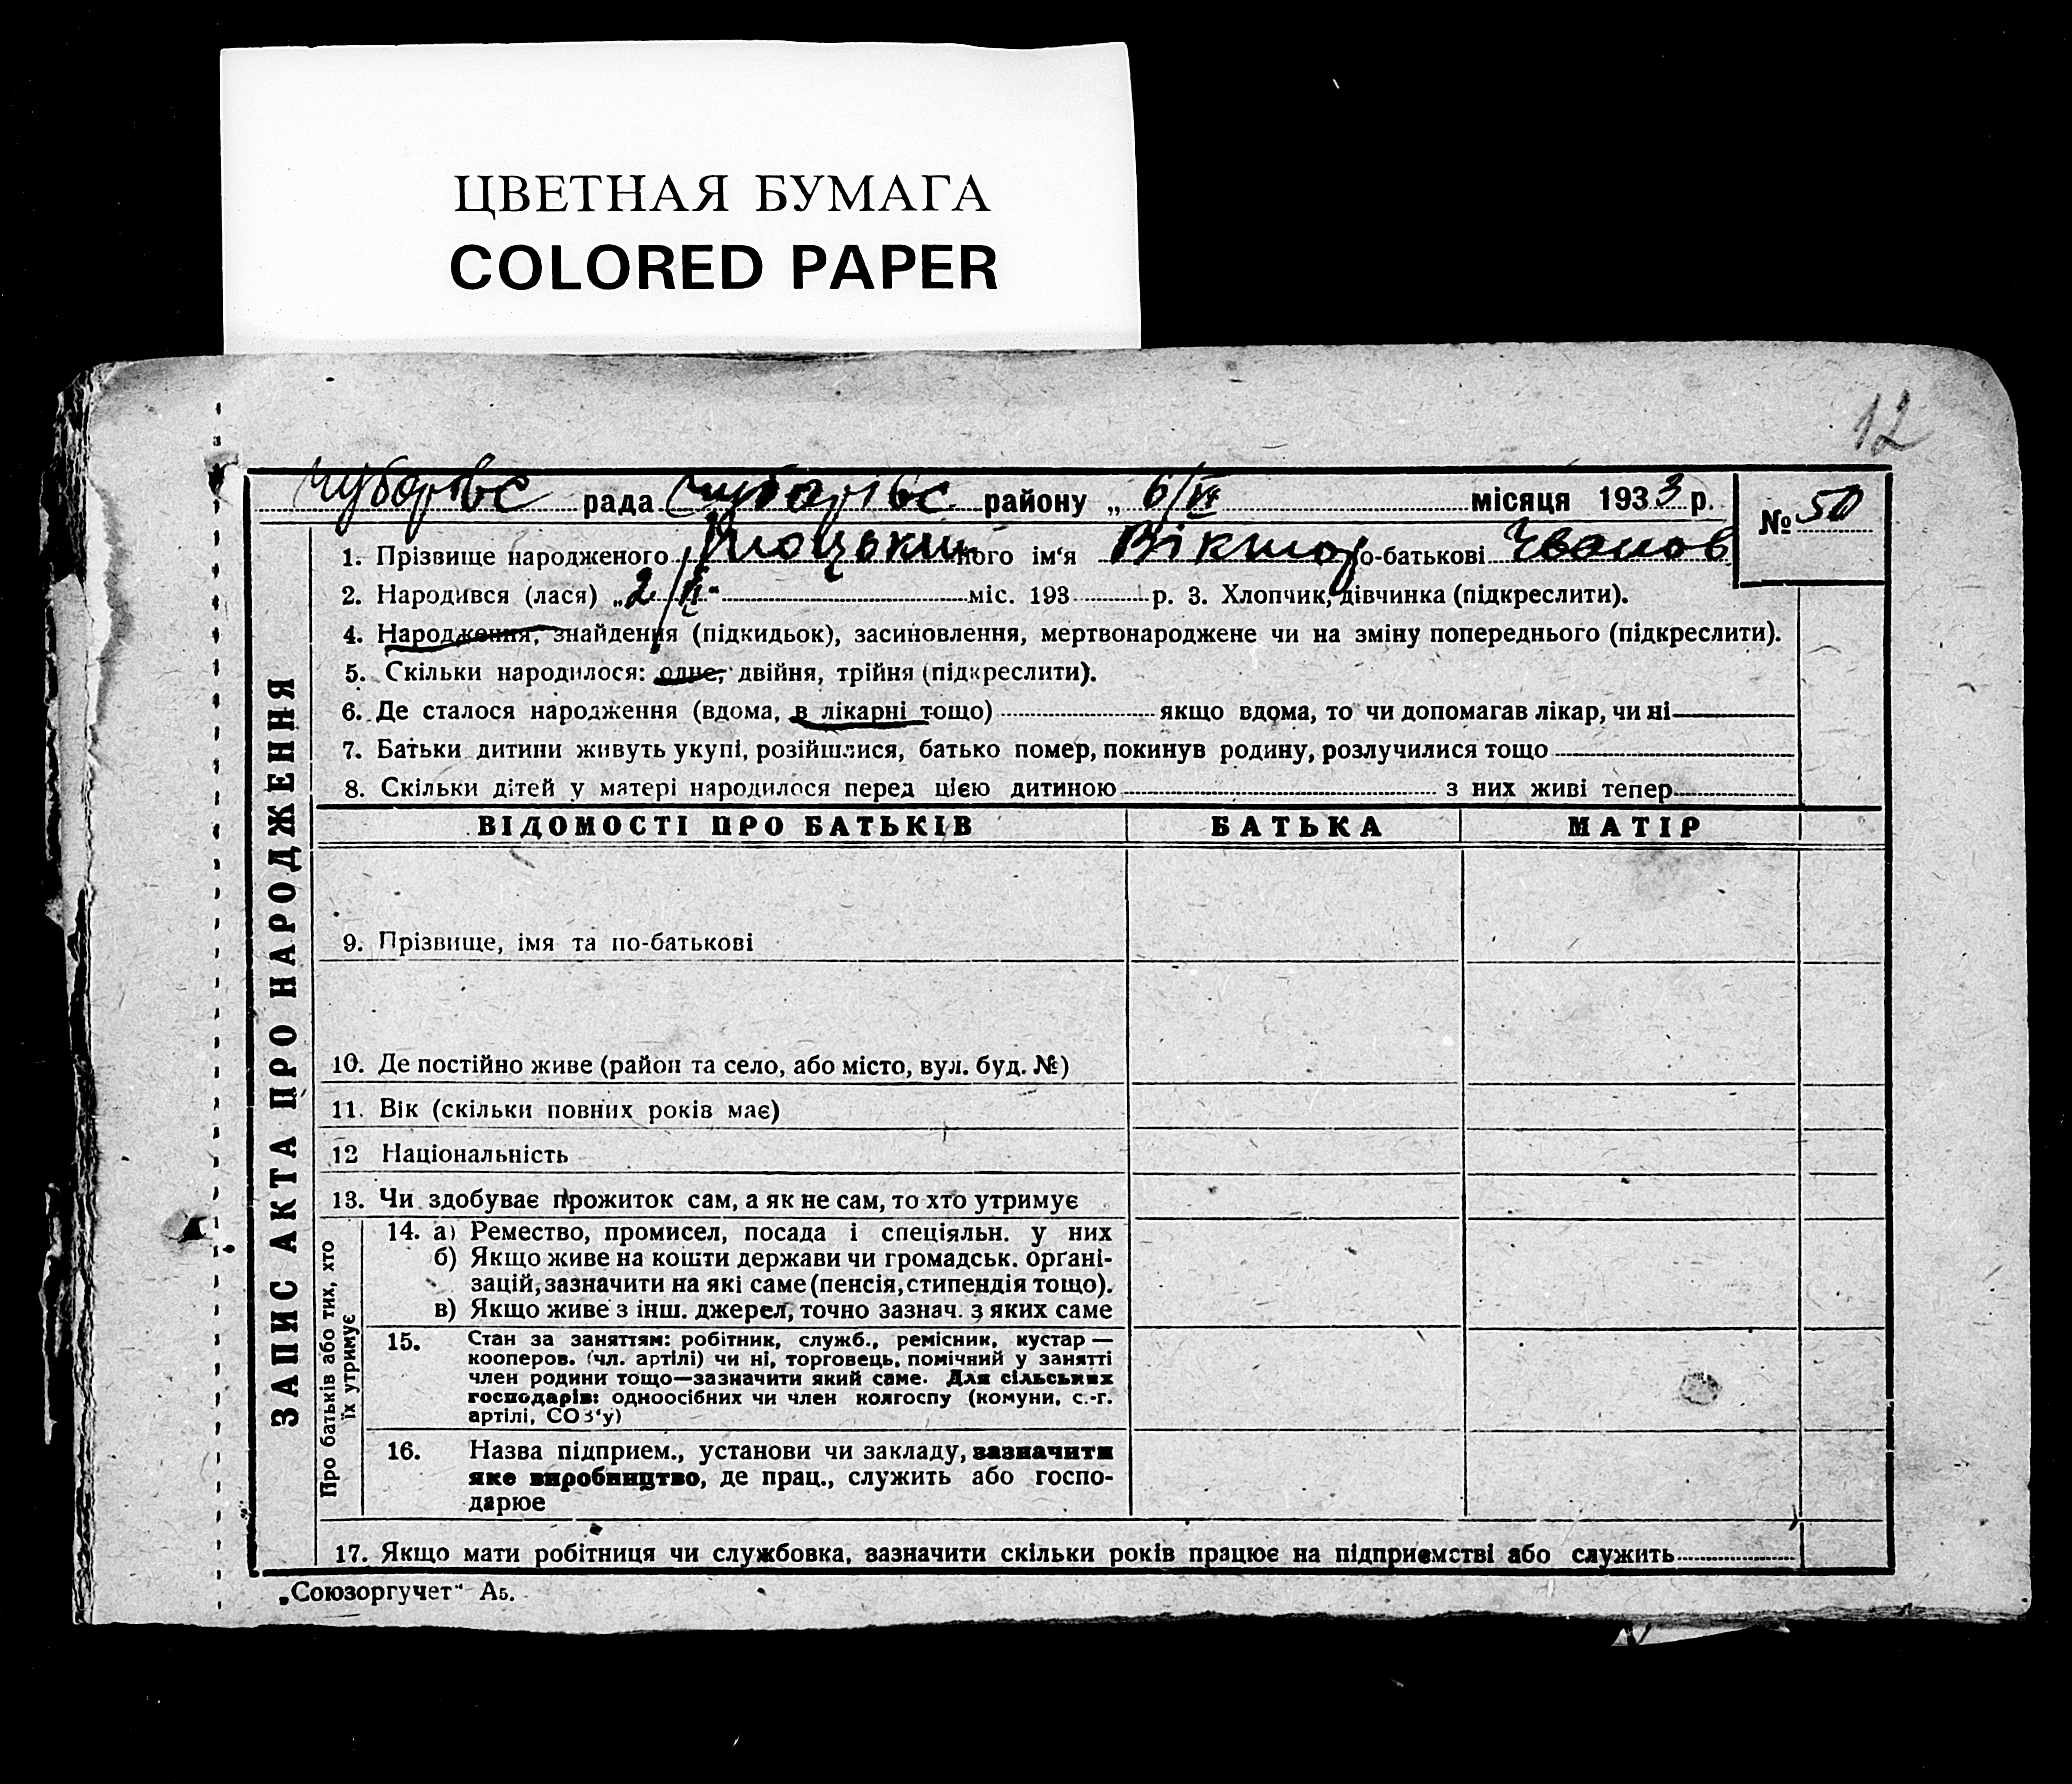 ЦВЕТНАЯ БУМАГА
COLORED PAPER
12
Чубарівс рада Чубарівс району „ 6/VI місяця 1933 р.
№ 50
1. Прізвище народженого його ім‘я Віктор по-батькові
2. Народився (лася) „ 2/ міс. 193 р. 3. Хлопчик, дівчинка (підкреслити).
4. Народження, знайдення (підкидьок), засиновлення, мертвонароджене чи на зміну попереднього (підкреслити).
5. Скільки народилося: одне, двійня, трійня (підкреслити).
6. Де сталося народження (вдома, в лікарні тощо) якщо вдома, то чи допомагав лікар, чи ні
7. Батьки дитини живуть укупі, розійшлися, батько помер, покинув родину, розлучилися тощо
8. Скільки дітей у матері народилося перед цією дитиною з них живі тепер
ВІДОМОСТІ ПРО БАТЬКІВ БАТЬКА МАТІР
9. Прізвище, імя та по-батькові
10. Де постійно живе (район та село, або місто, вул. буд. №)
11. Вік (скільки повних років має)
12 Національність
13. Чи здобуває прожиток сам, а як не сам, то хто утримує
Про батьків або тих, хто
їх утримує
14. а) Ремество, промисел, посада і спеціяльн. у них
б) Якщо живе на кошти держави чи громадськ. орґані-
зацій, зазначити на які саме (пенсія, стипендія тощо).
в) Якщо живе з інш. джерел, точно зазнач. з яких саме
15. Стан за заняттям: робітник, служб., ремісник, кустар —
кооперов. (чл. артілі) чи ні, торговець, помічний у занятті
член родини тощо—зазначити який саме. Для сільських
господарів: одноосібних чи член колгоспу (комуни, с.-г.
артілі, СОЗ‘у)
16. Назва підприєм., установи чи закладу, зазначити
яке виробництво, де прац., служить або госпо-
дарює
17. Якщо мати робітниця чи службовка, зазначити скільки років працює на підприємстві або служить
ЗАПИС АКТА ПРО НАРОДЖЕННЯ
„Союзоргучет“ А5.